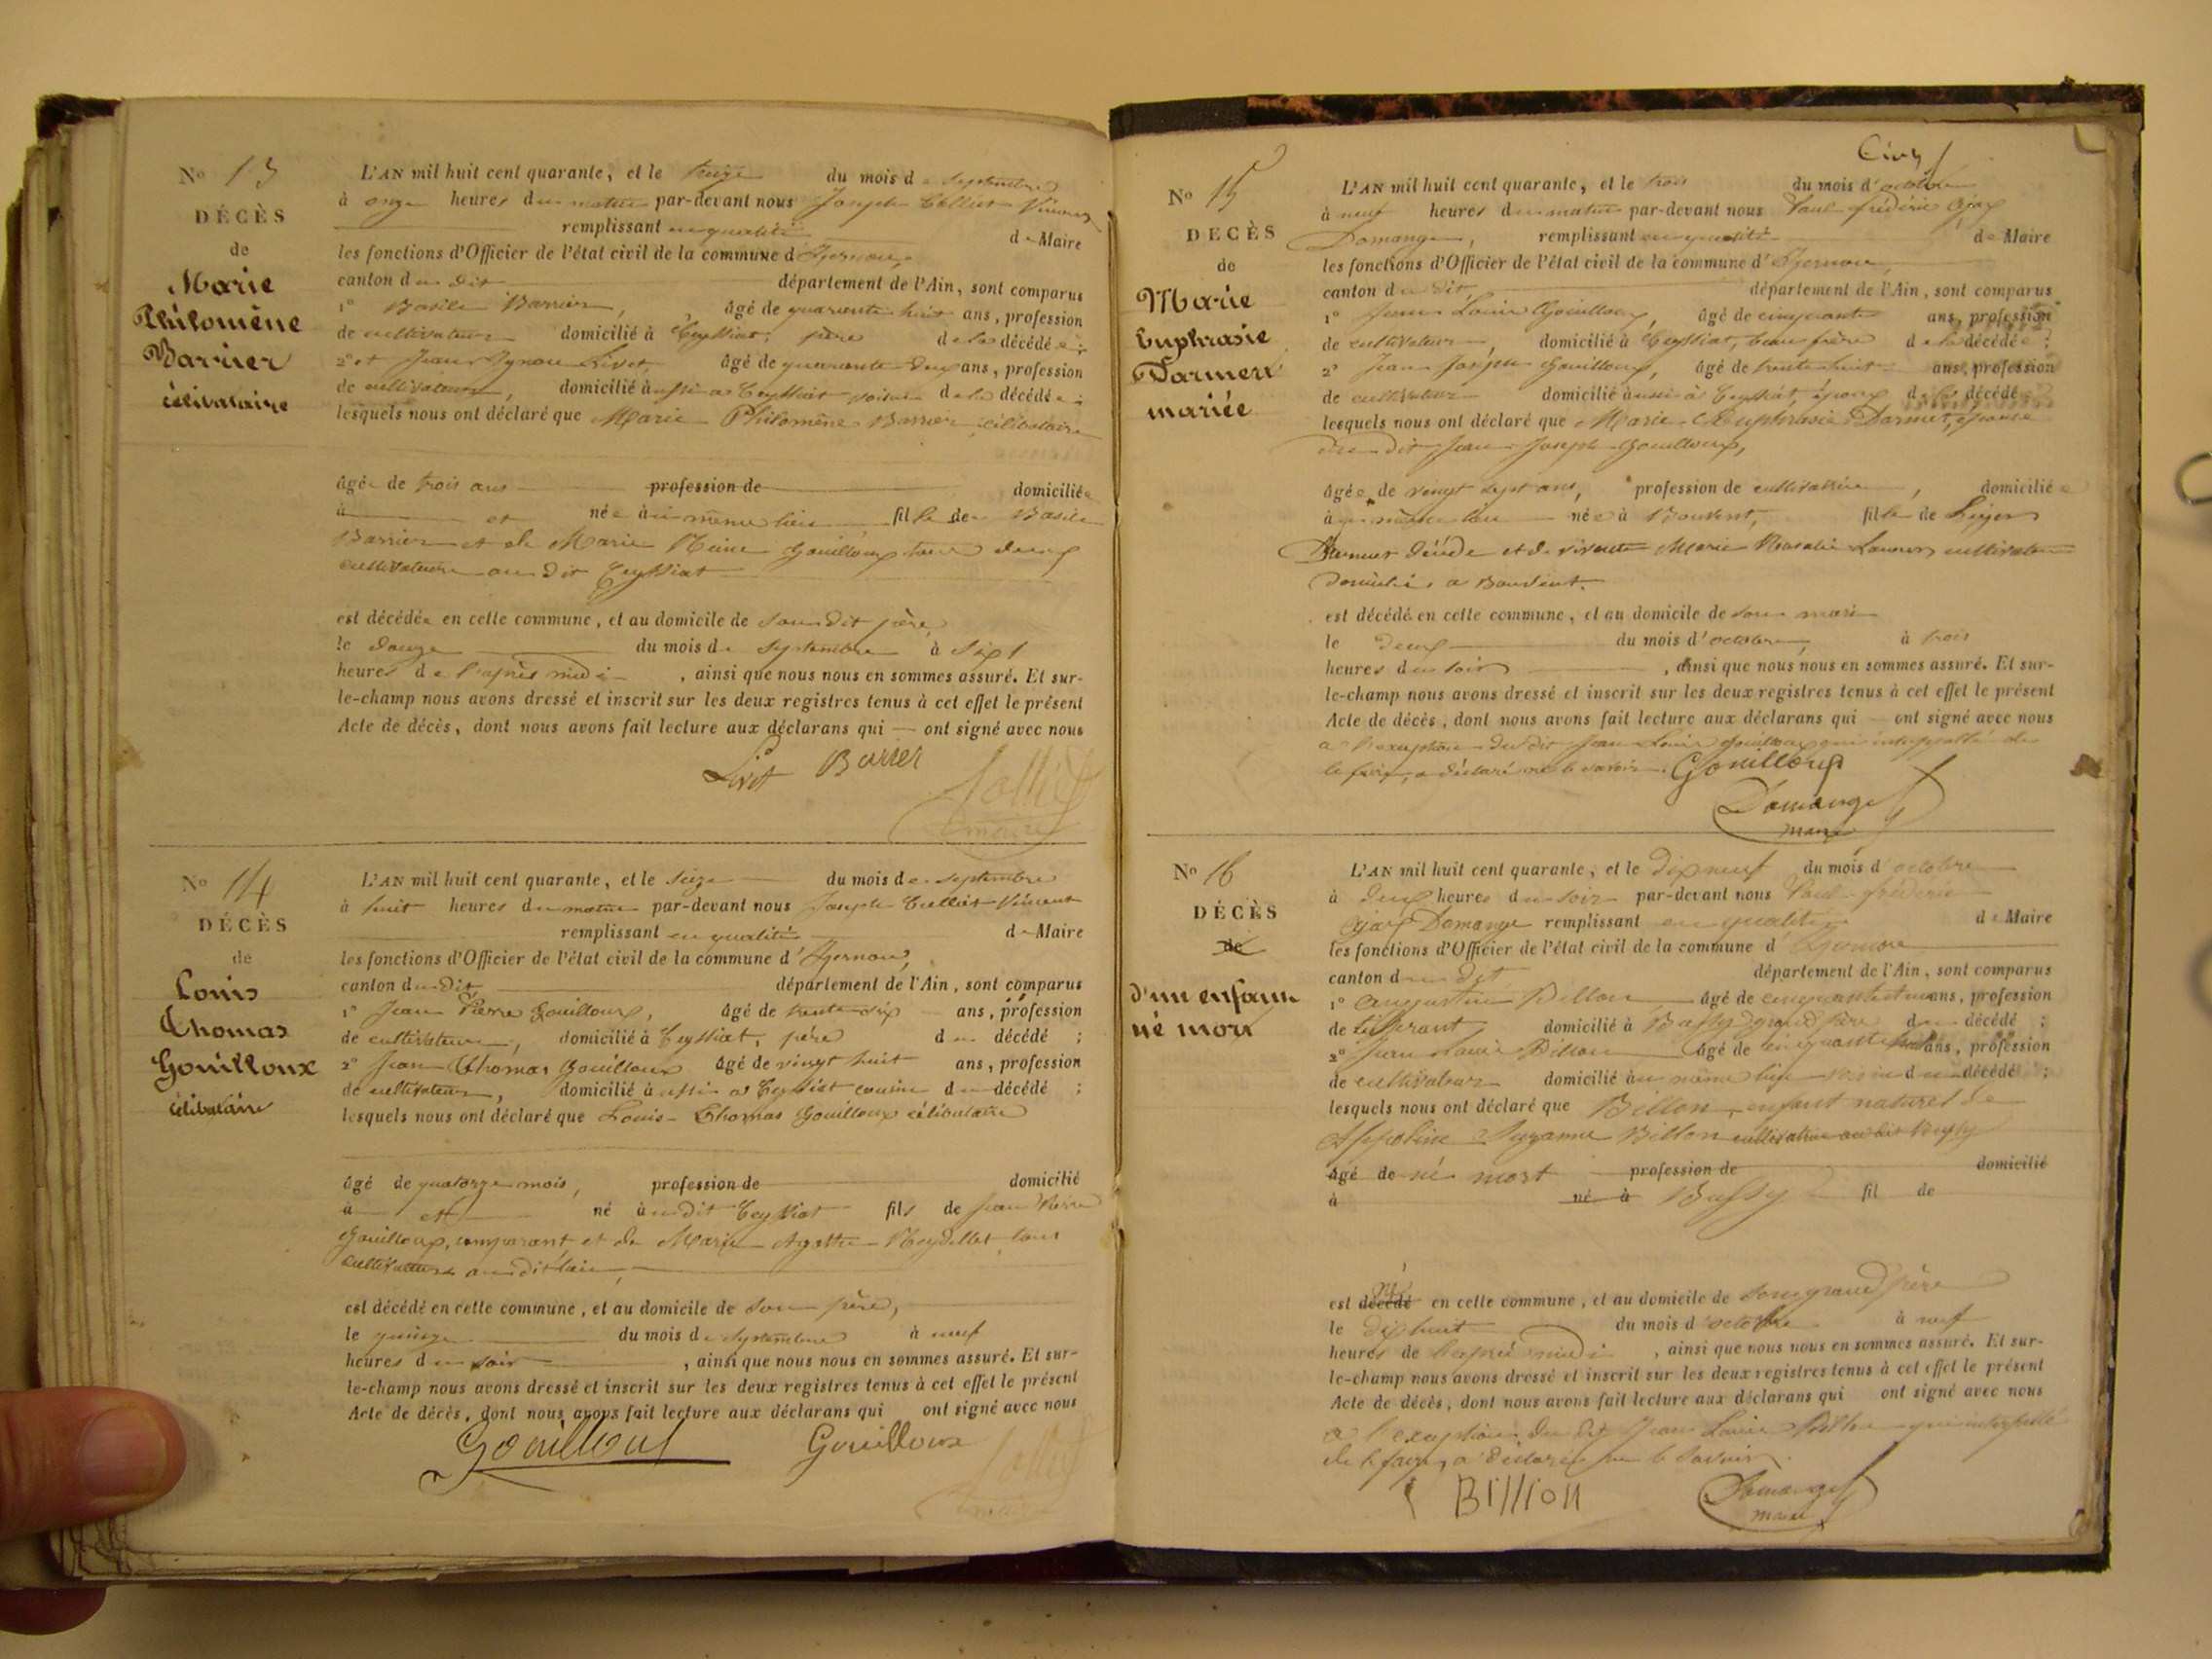 N° 13
DÉCÈS
de
Marie
Philomène
Barrier
célibataire
L'AN mil huit cent quarante, et le treize du mois de septembre
à onze heures du matin par-devant nous Joseph Collict Vincent
remplissant en qualité de Maire
les fonctions d'Officier de l'état civil de la commune d'Izernore,
canton du dit département de l'Ain, sont comparus
1° Basile Barrier, âgé de quarante huit ans, profession
de cultivateur domicilié à Ceyssiat, père de la décédée;
2° et Jean Livet, âgé de quarante deux ans, profession
de cultivateur, domicilié aussi à Ceyssiat voisin de la décédée;
lesquels nous ont déclaré que Marie Philomène Barrier célibataire
âgée de trois ans profession de domiciliée
à et née au même lieu fille de Basile
Barrier et de Marie Reine Gouilloux tous deux
cultivateurs au dit Ceyssiat
est décédée en cette commune, et au domicile de son dit père
le douze du mois de septembre à sept
heures de l'après midi, ainsi que nous nous en sommes assuré. Et sur-
le-champ nous avons dressé et inscrit sur les deux registres tenus à cet effet le présent
Acte de décès, dont nous avons fait lecture aux déclarans qui — ont signé avec nous
Livet Barrier
maire
N° 14
DÉCÈS
de
Louis
Thomas
Gouilloux
célibataire
L'AN mil huit cent quarante, et le seize du mois de septembre
à huit heures du matin par-devant nous Joseph Collict Vincent
remplissant en qualité de Maire
les fonctions d'Officier de l'état civil de la commune d'Izernore,
canton du dit département de l'Ain, sont comparus
1° Jean Pierre Gouilloux, âgé de trente six ans, profession
de cultivateur, domicilié à Ceyssiat, père du décédé;
2° Jean Thomas Gouilloux âgé de vingt huit ans, profession
de cultivateur, domicilié aussi à Ceyssiat cousin du décédé;
lesquels nous ont déclaré que Louis Thomas Gouilloux célibataire
âgé de quatorze mois, profession de domicilié
à et né au dit Ceyssiat fils de Jean Pierre
Gouilloux, comparant et de Marie Agathe Reydellet tous
cultivateurs au dit lieu,
est décédé en cette commune, et au domicile de son père,
le quinze du mois de septembre à neuf
heures du soir, ainsi que nous nous en sommes assuré. Et sur-
le-champ nous avons dressé et inscrit sur les deux registres tenus à cet effet le présent
Acte de décès, dont nous avons fait lecture aux déclarans qui ont signé avec nous
Gouilloux Gouilloux
maire
Cinq
N° 15
DÉCÈS
de
Marie
Euphrasie
Darmet
mariée
L'AN mil huit cent quarante, et le trois du mois d'octobre
à neuf heures du matin par-devant nous Paul frédéric Ajax
Domange, remplissant en qualité de Maire
les fonctions d'Officier de l'état civil de la commune d'Izernore,
canton du dit, département de l'Ain, sont comparus
1° Jean Louis Gouilloux, âgé de cinquante ans, profession
de cultivateur, domicilié à Ceyssiat, beau frère de la décédée;
2° Jean Joseph Gouilloux, âgé de trente huit ans, profession
de cultivateur domicilié aussi à Ceyssiat, époux de la décédée
lesquels nous ont déclaré que Marie Euphrasie Darmet, épouse
du dit Jean Joseph Gouilloux,
âgée de vingt sept ans, profession de cultivatrice, domiciliée
à même lieu née à Bouvent, fille de Léger
Darmet décédé et de vivante Marie Rosalie cultivatrice
domiciliée à Bouvent.
est décédé en cette commune, et au domicile de son mari
le deux du mois d'octobre, à trois
heures du soir, ainsi que nous nous en sommes assuré. Et sur-
le-champ nous avons dressé et inscrit sur les deux registres tenus à cet effet le présent
Acte de décès, dont nous avons fait lecture aux déclarans qui — ont signé avec nous
a l'exception du dit Jean Louis Gouilloux qui interpellé de
le faire, a déclaré ne le savoir. Gouilloux
Domange
maire
N° 16
DÉCÈS
de
d'un enfant
né mort
L'AN mil huit cent quarante, et le dix neuf du mois d'octobre
à deux heures du soir par-devant nous Paul frédéric
Ajax Domange remplissant en qualité de Maire
les fonctions d'Officier de l'état civil de la commune d'Izernore
canton du dit département de l'Ain, sont comparus
1° Augustin Billon âgé de cinquante ans, profession
de tisserant domicilié à Bussy grand père du décédé;
2° Jean Louis Billon âgé de cinquante ans, profession
de cultivateur domicilié au même lieu voisin du décédé;
lesquels nous ont déclaré que Billon, enfant naturel de
Appoline Suzanne Billon cultivatrice au dit Bussy
âgé de né mort profession de domicilié
à né à Bussy fil de
est décédé né en cette commune, et au domicile de son grand père
le dix huit du mois d'octobre à neuf
heures de l'après midi, ainsi que nous nous en sommes assuré. Et sur-
le-champ nous avons dressé et inscrit sur les deux registres tenus à cet effet le présent
Acte de décès, dont nous avons fait lecture aux déclarans qui ont signé avec nous
a l'exception du dit Jean Louis Billon qui interpellé
de le faire, a déclaré ne le savoir.
Billion Domange
maire